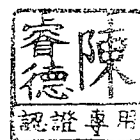 陳睿德
認證專用